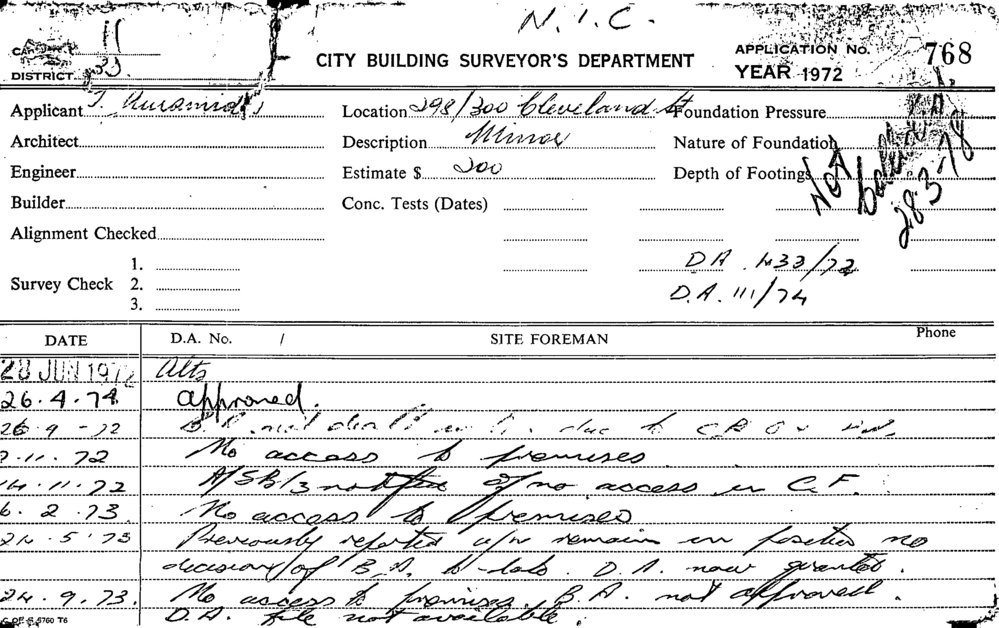 N.I.C.
11
CITY BUILDING SURVEYOR'S DEPARTMENT
APPLICATION No. 768
DISTRICT
YEAR 1972
Applicant T.
Location 298/300 Cleveland St
Foundation Pressure
Architect
Description Minor
Nature of Foundation
Engineer
Estimate $ 200
Depth of Footings
NOT
28-3-78
Builder
Conc. Tests (Dates)
Alignment Checked
D A . 433/72
Survey Check
1.
2.
3.
D.A. 111/74
DATE
D.A. No. /
SITE FOREMAN
Phone
28 JUN 1972 Alts
26.4.74 approved.
26.9-72 due to
.11.72 No access to premises
14.11.72 A/SB/3 notified of no access in C.F.
6.2.73. No access to premises
24.5.73 Previously reported a/w remain in position no
decision of B.A. to-date. D.A. now granted.
24.9.73. No access to premises. B.A. not approved.
D.A. file not available.